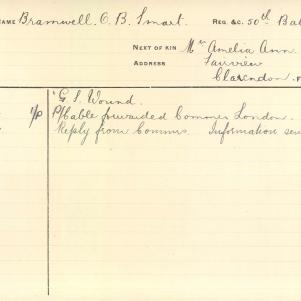 NAME Bramwell. O. B. Smart. REG. &C. 50th Bat
NEXT OF KIN Mrs Amelia Ann
ADDRESS Fairview
Clarendon. F
G. S. Wound.
1/P P/Cable forwarded Commrs London.
Reply from Commrs. Information sen